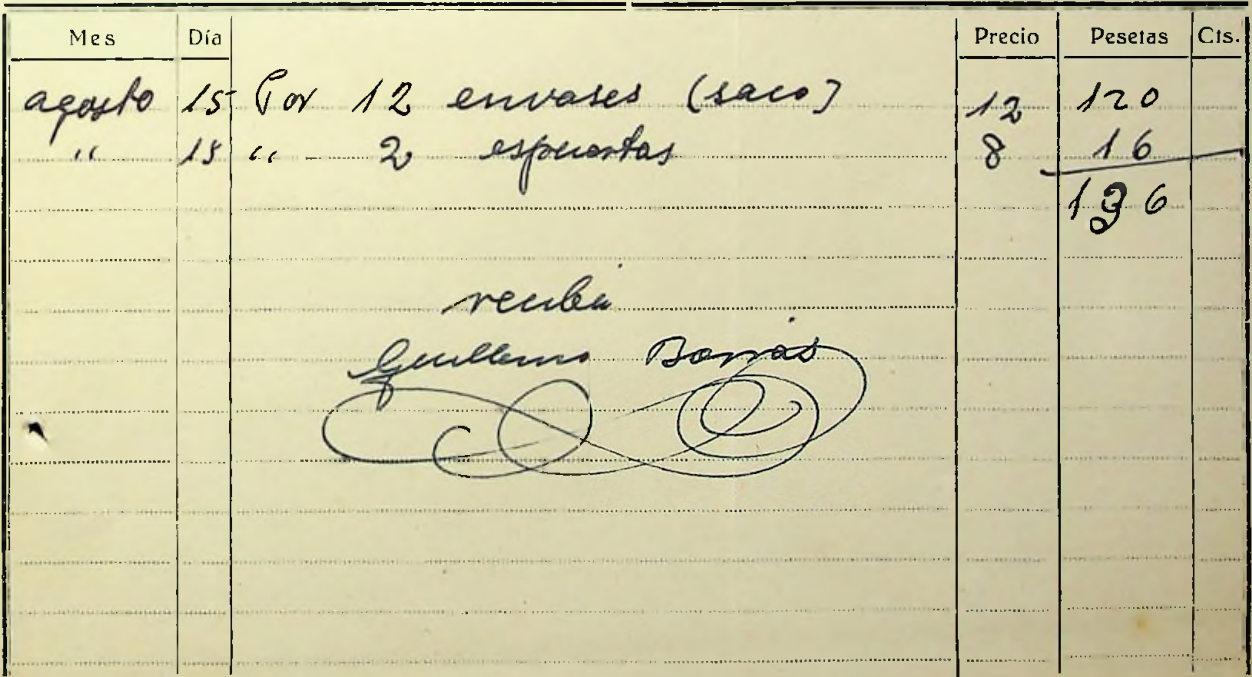 Mes Día Precio Pesetas Cts.
agosto 15 Por 12 envases (saco) 12 120
" 15 " 2 espuertas 8 16
136
recibi
Guillermo Borrás